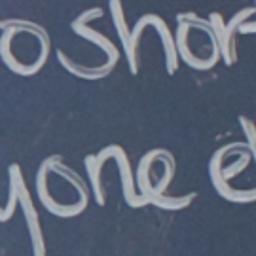 oshar
yone e